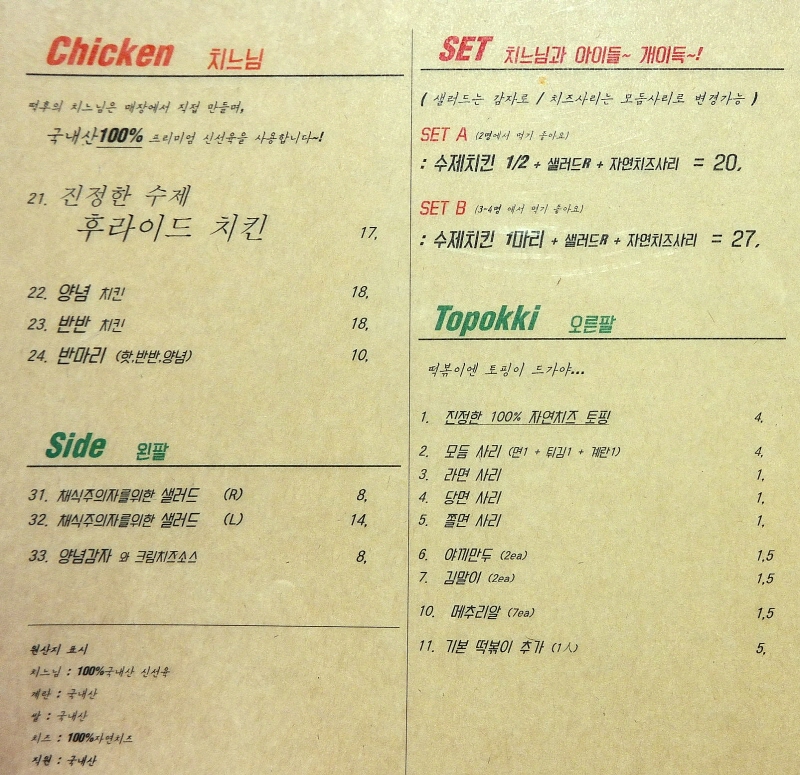 Chicken 치느님
떡후의 치느님은 매장에서 직접 만들며,
국내산100% 프리미엄 신선육을 사용합니다~!
21. 진정한 수제
후라이드 치킨 17,
22. 양념 치킨 18,
23. 반반 치킨 18,
24. 반마리 (핫,반반,양념) 10,
Side 왼팔
31. 채식주의자를위한 샐러드 (R) 8,
32. 채식주의자를위한 샐러드 (L) 14,
33. 양념감자 와 크림치즈소스 8,
원산지 표시
치느님 : 100%국내산 신선육
계란 : 국내산
쌀 : 국내산
치즈 : 100%자연치즈
직원 : 국내산
SET 치느님과 아이들~ 개이득~!
( 샐러드는 감자로 / 치즈사리는 모듬사리로 변경가능 )
SET A (2명에서 먹기 좋아요)
: 수제치킨 1/2 + 샐러드R + 자연치즈사리 = 20,
SET B (3-4명 에서 먹기 좋아요)
: 수제치킨 1마리 + 샐러드R + 자연치즈사리 = 27,
Topokki 오른팔
떡볶이엔 토핑이 드가야...
1. 진정한 100% 자연치즈 토핑 4,
2. 모듬 사리 (면1 + 튀김1 + 계란1) 4,
3. 라면 사리 1,
4. 당면 사리 1,
5. 쫄면 사리 1,
6. 야끼만두 (2ea) 1,5
7. 김말이 (2ea) 1,5
10. 메추리알 (7ea) 1,5
11. 기본 떡볶이 추가 (1人) 5,